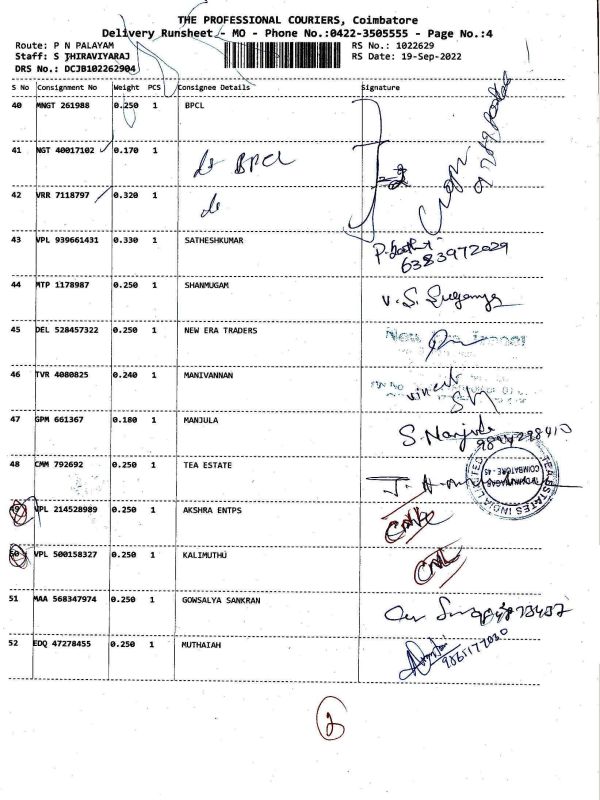 THE PROFESSIONAL COURIERS, Coimbatore
Delivery Runsheet - MO - Phone No.:0422-3505555 - Page No.:4
Route: P N PALAYAM RS No.: 1022629
Staff: S THIRAVIYARAJ RS Date: 19-Sep-2022
DRS No.: DCJB102262904
S No Consignment No Weight PCS Consignee Details Signature
40 MNGT 261988 0.250 1 BPCL
41 NGT 40017102 0.170 1 BPCL
42 VRR 7118797 0.320 1
43 VPL 939661431 0.330 1 SATHESHKUMAR
6383972029
44 MTP 1178987 0.250 1 SHANMUGAM V.S. Suganya
45 DEL 528457322 0.250 1 NEW ERA TRADERS
46 TVR 4080825 0.240 1 MANIVANNAN
47 GPM 661367 0.180 1 MANJULA S. Manjula
48 CMM 792692 0.250 1 TEA ESTATE
TEA ESTATES INDIA LIMITED
COIMBATORE - 45
49 VPL 214528989 0.250 1 AKSHRA ENTPS
50 VPL 500158327 0.250 1 KALIMUTHU
51 MAA 568347974 0.250 1 GOWSALYA SANKRAN
52 EDQ 47278455 0.250 1 MUTHAIAH
2